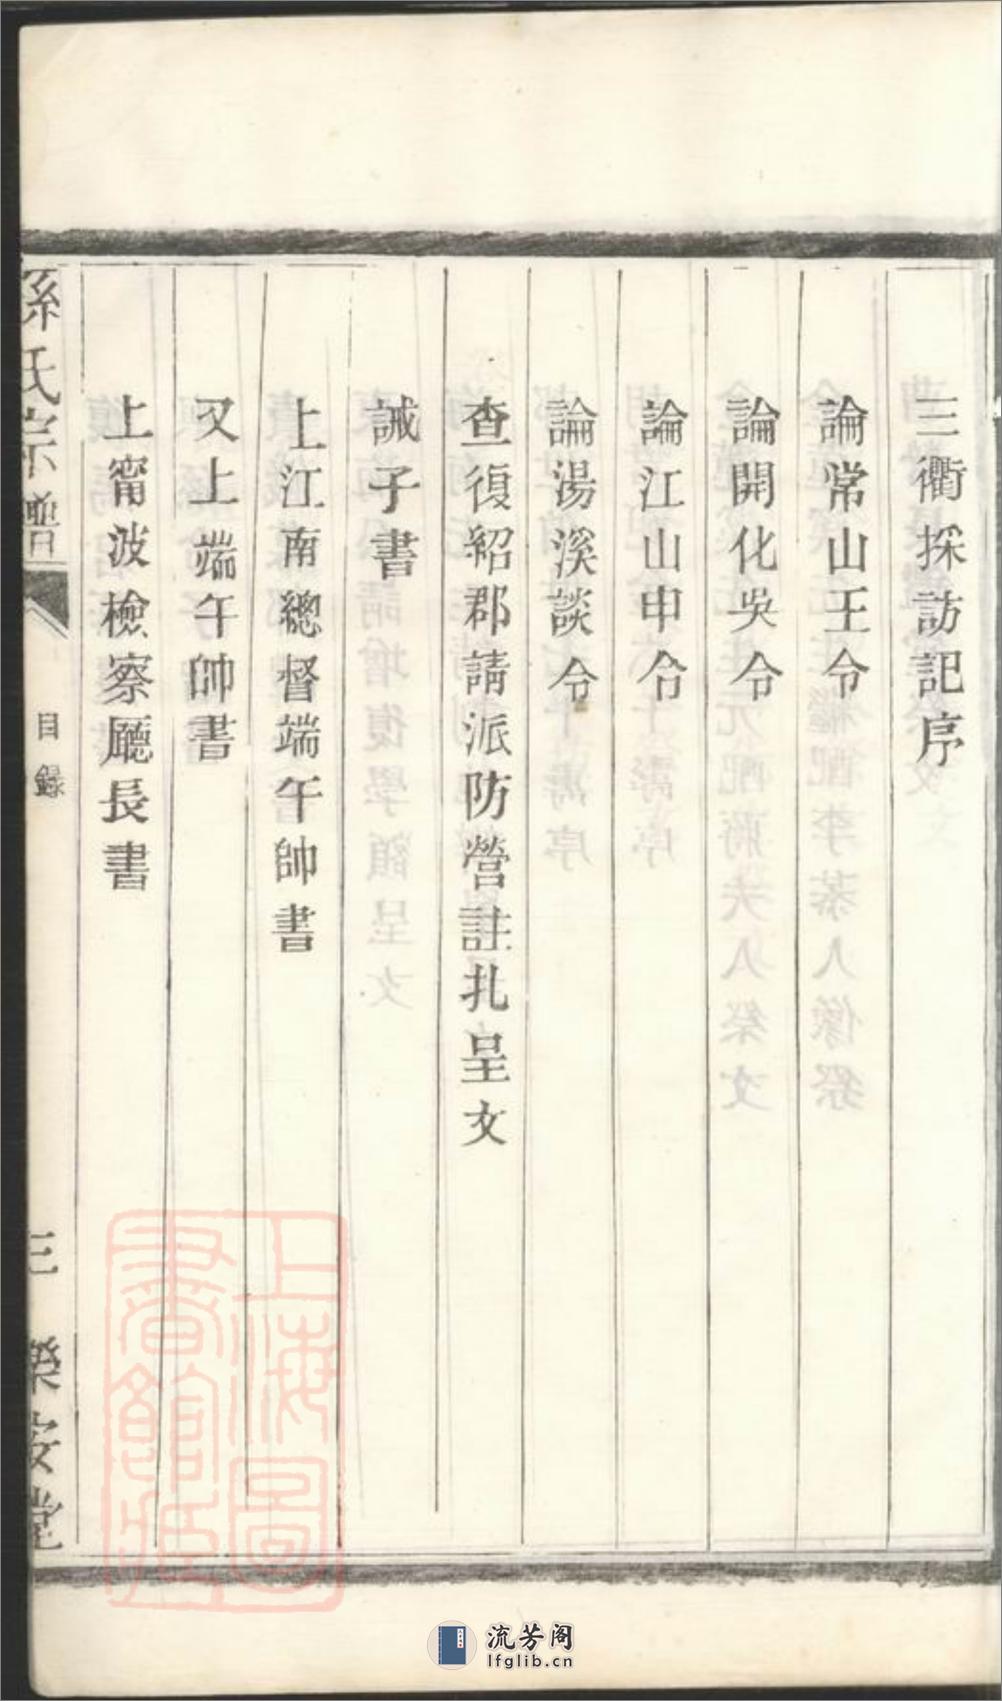 三衢採訪記序
論常山王令
論開化吳令
論江山申令
論湯溪談令
查復紹郡請派防營註扎呈文
誡子書
上江南總督端午帥書
又上端午帥書
上甯波檢察廳長書
孫氏宗譜
目錄
三
樂安堂
上海圖
書館藏
流芳阁
lfglib.cn